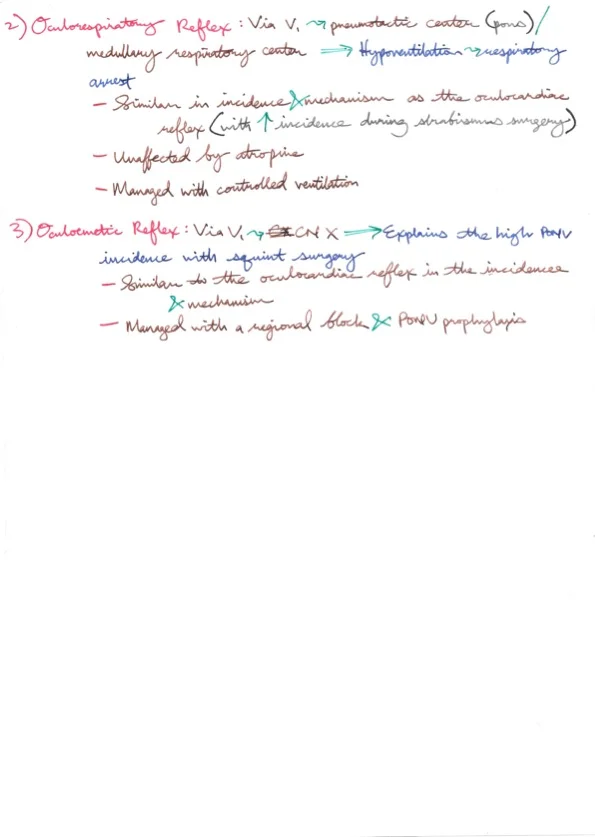 2) Oculorespiratory Reflex: Via V₁ ⇝ pneumotactic center (pons)/
medullary respiratory center ⇒ Hypoventilation ⇝ respiratory
arrest
– Similar in incidence & mechanism as the oculocardiac
reflex (with ↑ incidence during strabismus surgery)
– Unaffected by atropine
– Managed with controlled ventilation
3) Oculoemetic Reflex: Via V₁ ⇝ CN X ⇒ Explains the high PONV
incidence with squint surgery
– Similar to the oculocardiac reflex in the incidence
& mechanism
– Managed with a regional block & PONV prophylaxis